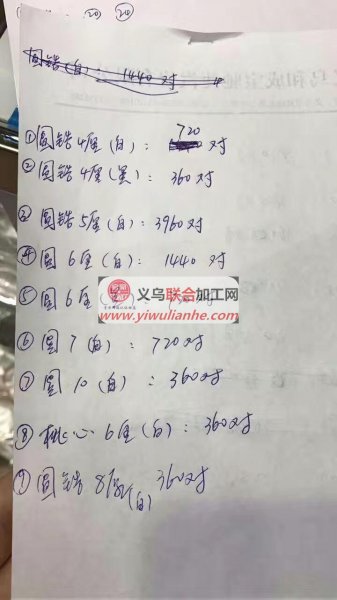 20 20
圆锆(白) 1440对
①圆锆4厘(白): 720对
②圆锆4厘(黑): 360对
③圆锆5厘(白): 3960对
④圆 6厘(白): 1440对
⑤圆 6厘
义乌联合加工网
www.yiwulianhe.com
⑥圆 7(白): 720对
⑦圆 10(白): 360对
⑧桃心 6厘(白): 360对
⑨圆锆 8厘(白) 360对